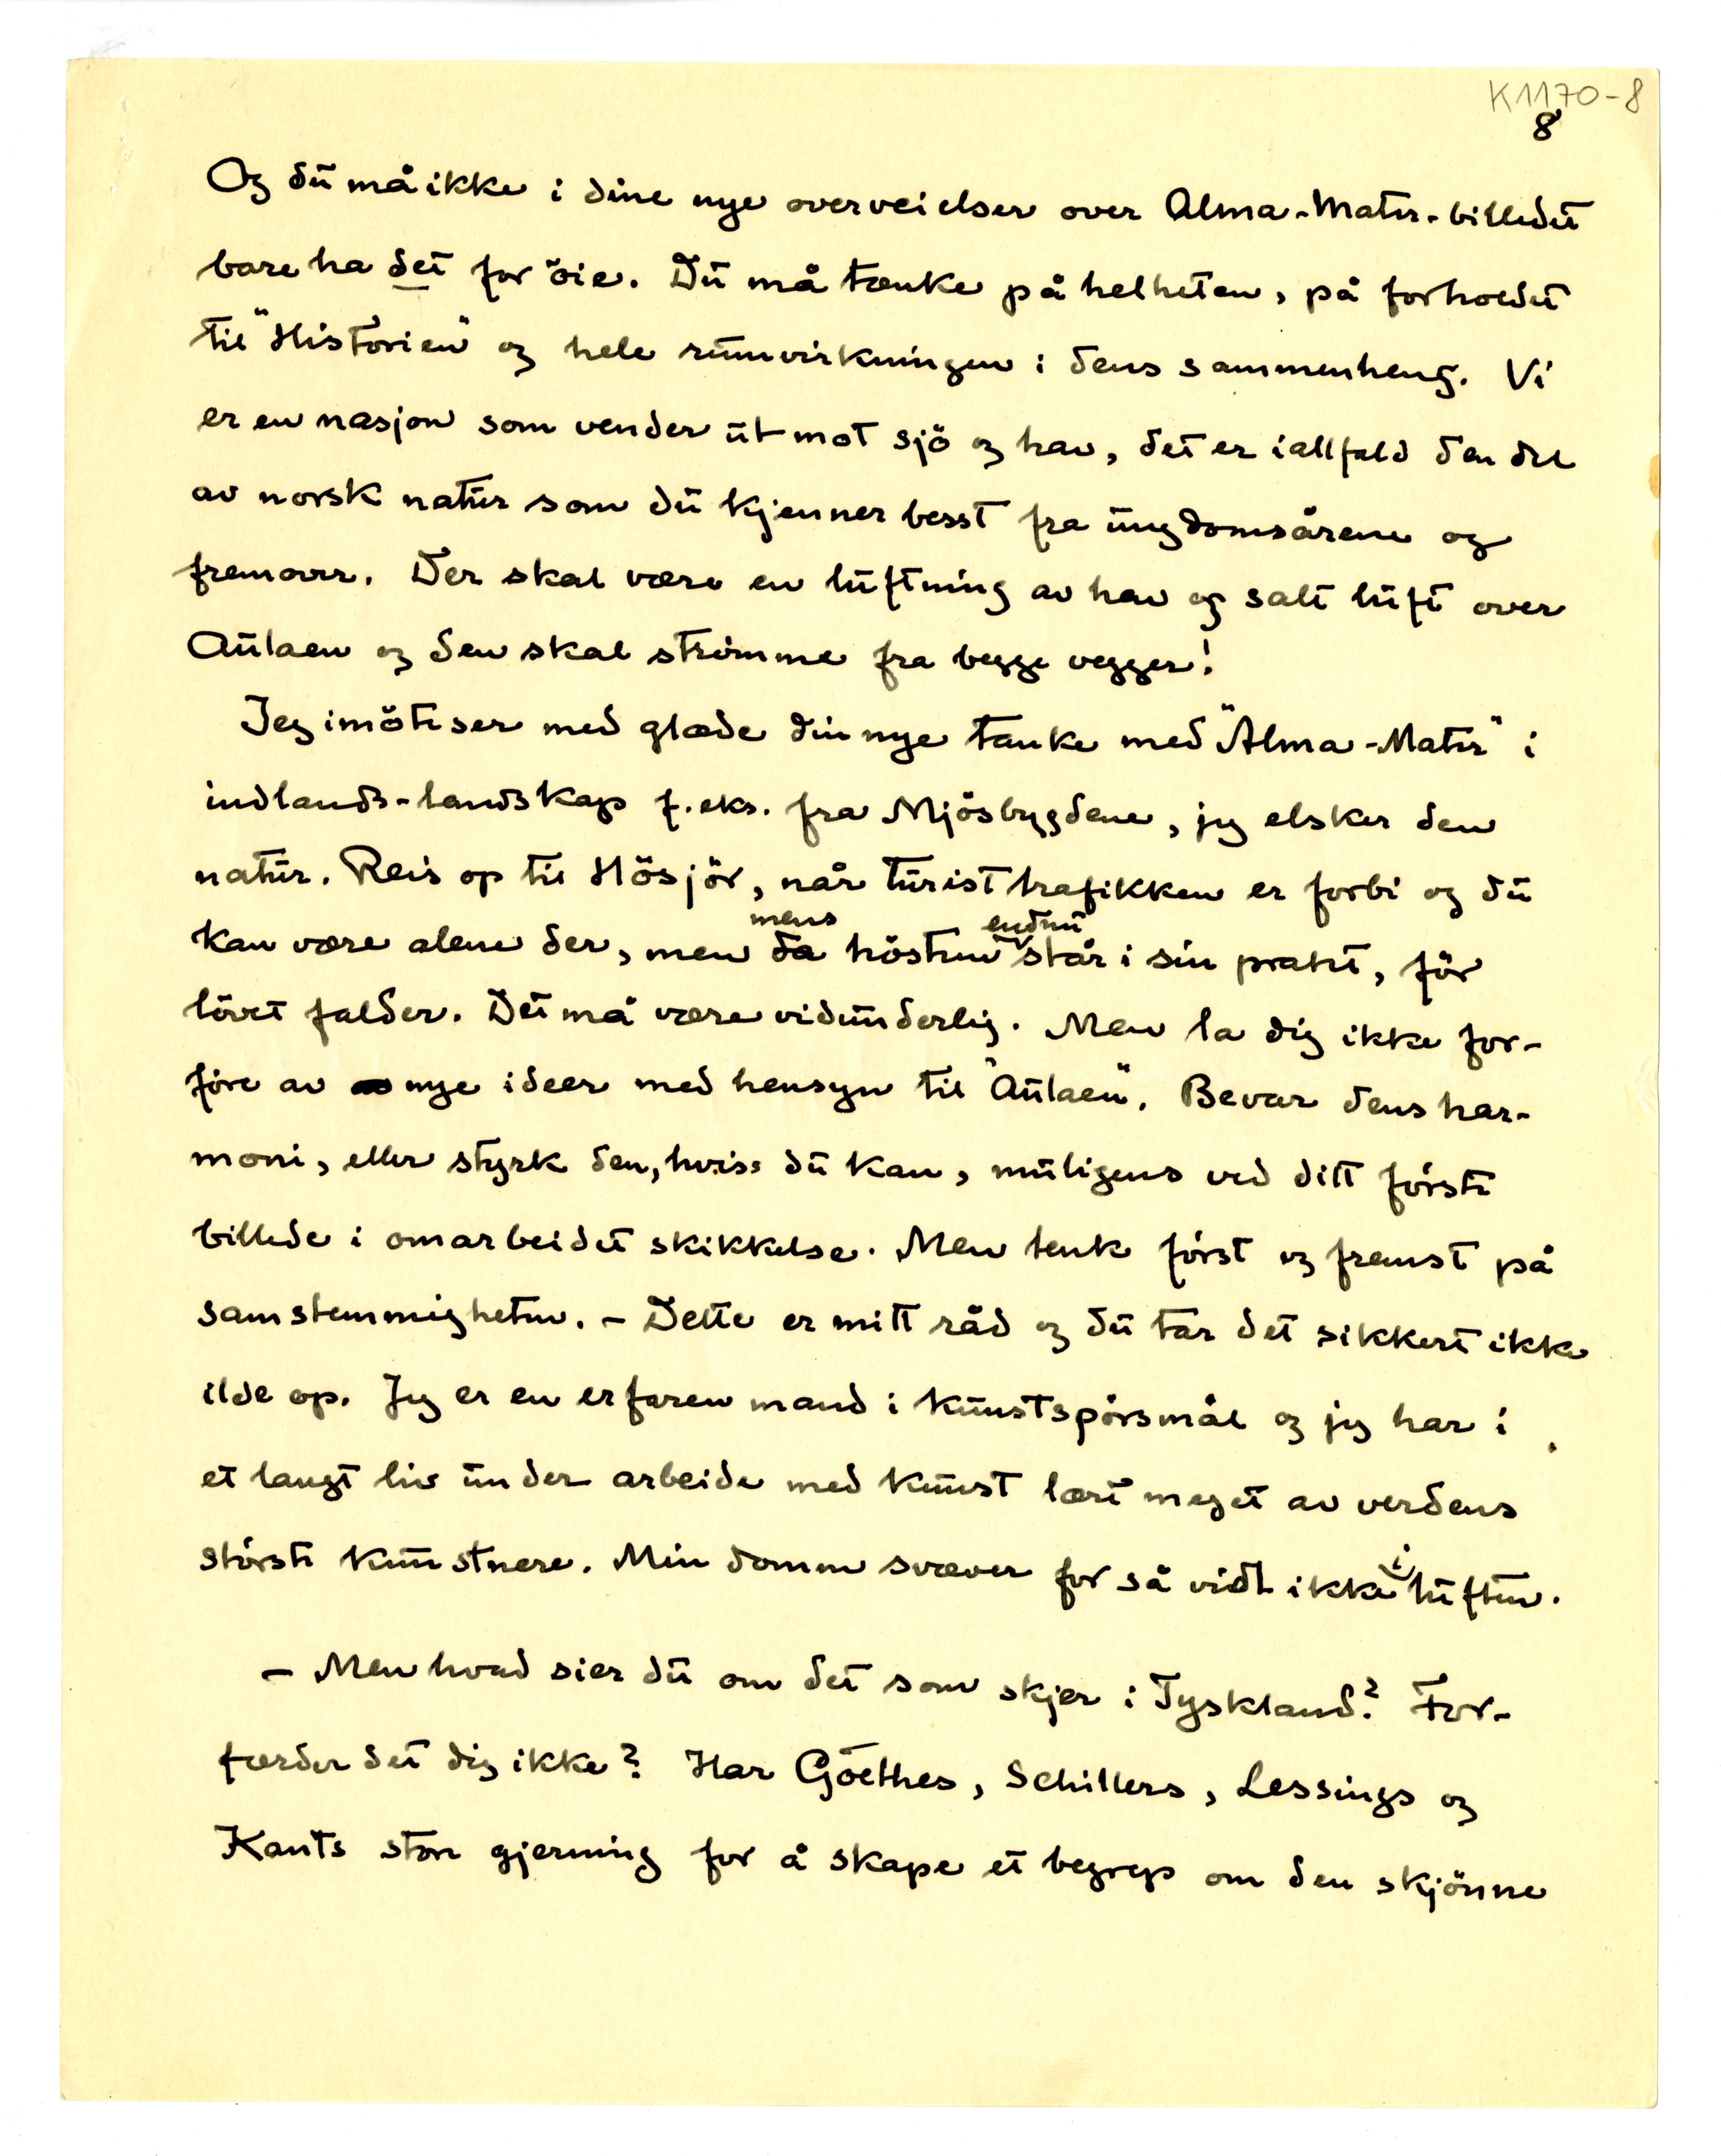 K1170-8
8
Og du må ikke i dine nye overveielser over Alma-Mater-billedet
bare ha det for öie. Du må tænke på helheten, på forholdet
til "Historien" og hele rumvirkningen i dens sammenheng. Vi
er en nasjon som vender ut mot sjö og hav, det er iallfald den del
av norsk natur som du kjenner besst fra ungdomsårene og
fremover. Der skal være en luftning av hav og salt luft over
Aulaen og den skal strömme fra begge vegger!
Jeg imöteser med glæde din nye tanke med "Alma-Mater" i
indlands-landskap f.eks. fra Mjösbygdene, jeg elsker den
natur. Reis op til Hösjör, når turisttrafikken er forbi og du
mens endnu
kan være alene der, men da hösten står i sin prakt, för
lövet falder. Det må være vidunderlig. Men la dig ikke for-
före av nye ideer med hensyn til "Aulaen". Bevar dens har-
moni, eller styrk den, hviss du kan, muligens ved ditt förste
billede i omarbeidet skikkelse. Men tenk först og fremst på
samstemmigheten. - Dette er mitt råd og du tar det sikkert ikke
ilde op. Jeg er en erfaren mand i kunstspörsmål og jeg har i
et langt liv under arbeide med kunst lært meget av verdens
störste kunstnere. Min domm svæver for så vidt ikke i luften.
- Men hvad sier du om det som skjer i Tyskland? For-
færder det dig ikke? Har Göethes, Schillers, Lessings og
Kants store gjerning for å skape et begrep om den skjönne